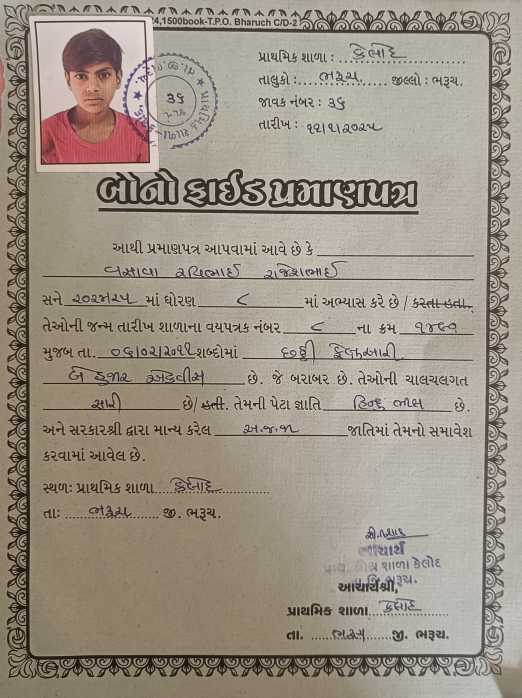 4,1500book-T.P.O. Bharuch C/D-2
પ્રાથમિક શાળા : કેલોદ
તાલુકો : ભરૂચ જીલ્લો : ભરૂચ.
જાવક નંબર : ૩૬
તારીખ : ૧૨/૧/૨૦૨૫
૩૬
બોનાફાઈડ પ્રમાણપત્ર
આથી પ્રમાણપત્ર આપવામાં આવે છે કે
વસાવા રવિભાઈ રાજેશભાઈ
સને ૨૦૨૪૨૫ માં ધોરણ ૮ માં અભ્યાસ કરે છે / કરતા હતા.
તેઓની જન્મ તારીખ શાળાના વયપત્રક નંબર ૮ ના ક્રમ
મુજબ તા. ૦૬/૦૨/૨૦૧૧ શબ્દોમાં છઠ્ઠી ફેબ્રુઆરી
બે હજાર અગિયાર છે. જે બરાબર છે. તેઓની ચાલચલગત
સારી છે/ હતી. તેમની પેટા જ્ઞાતિ હિન્દુ ભીલ છે.
અને સરકારશ્રી દ્વારા માન્ય કરેલ અ.જ.જા જાતિમાં તેમનો સમાવેશ
કરવામાં આવેલ છે.
સ્થળ: પ્રાથમિક શાળા કેલોદ
તા: ભરૂચ જી. ભરૂચ.
આચાર્ય
શાળા કેલોદ
આચાર્યશ્રી,
પ્રાથમિક શાળા કેલોદ
તા. ભરૂચ જી. ભરૂચ.